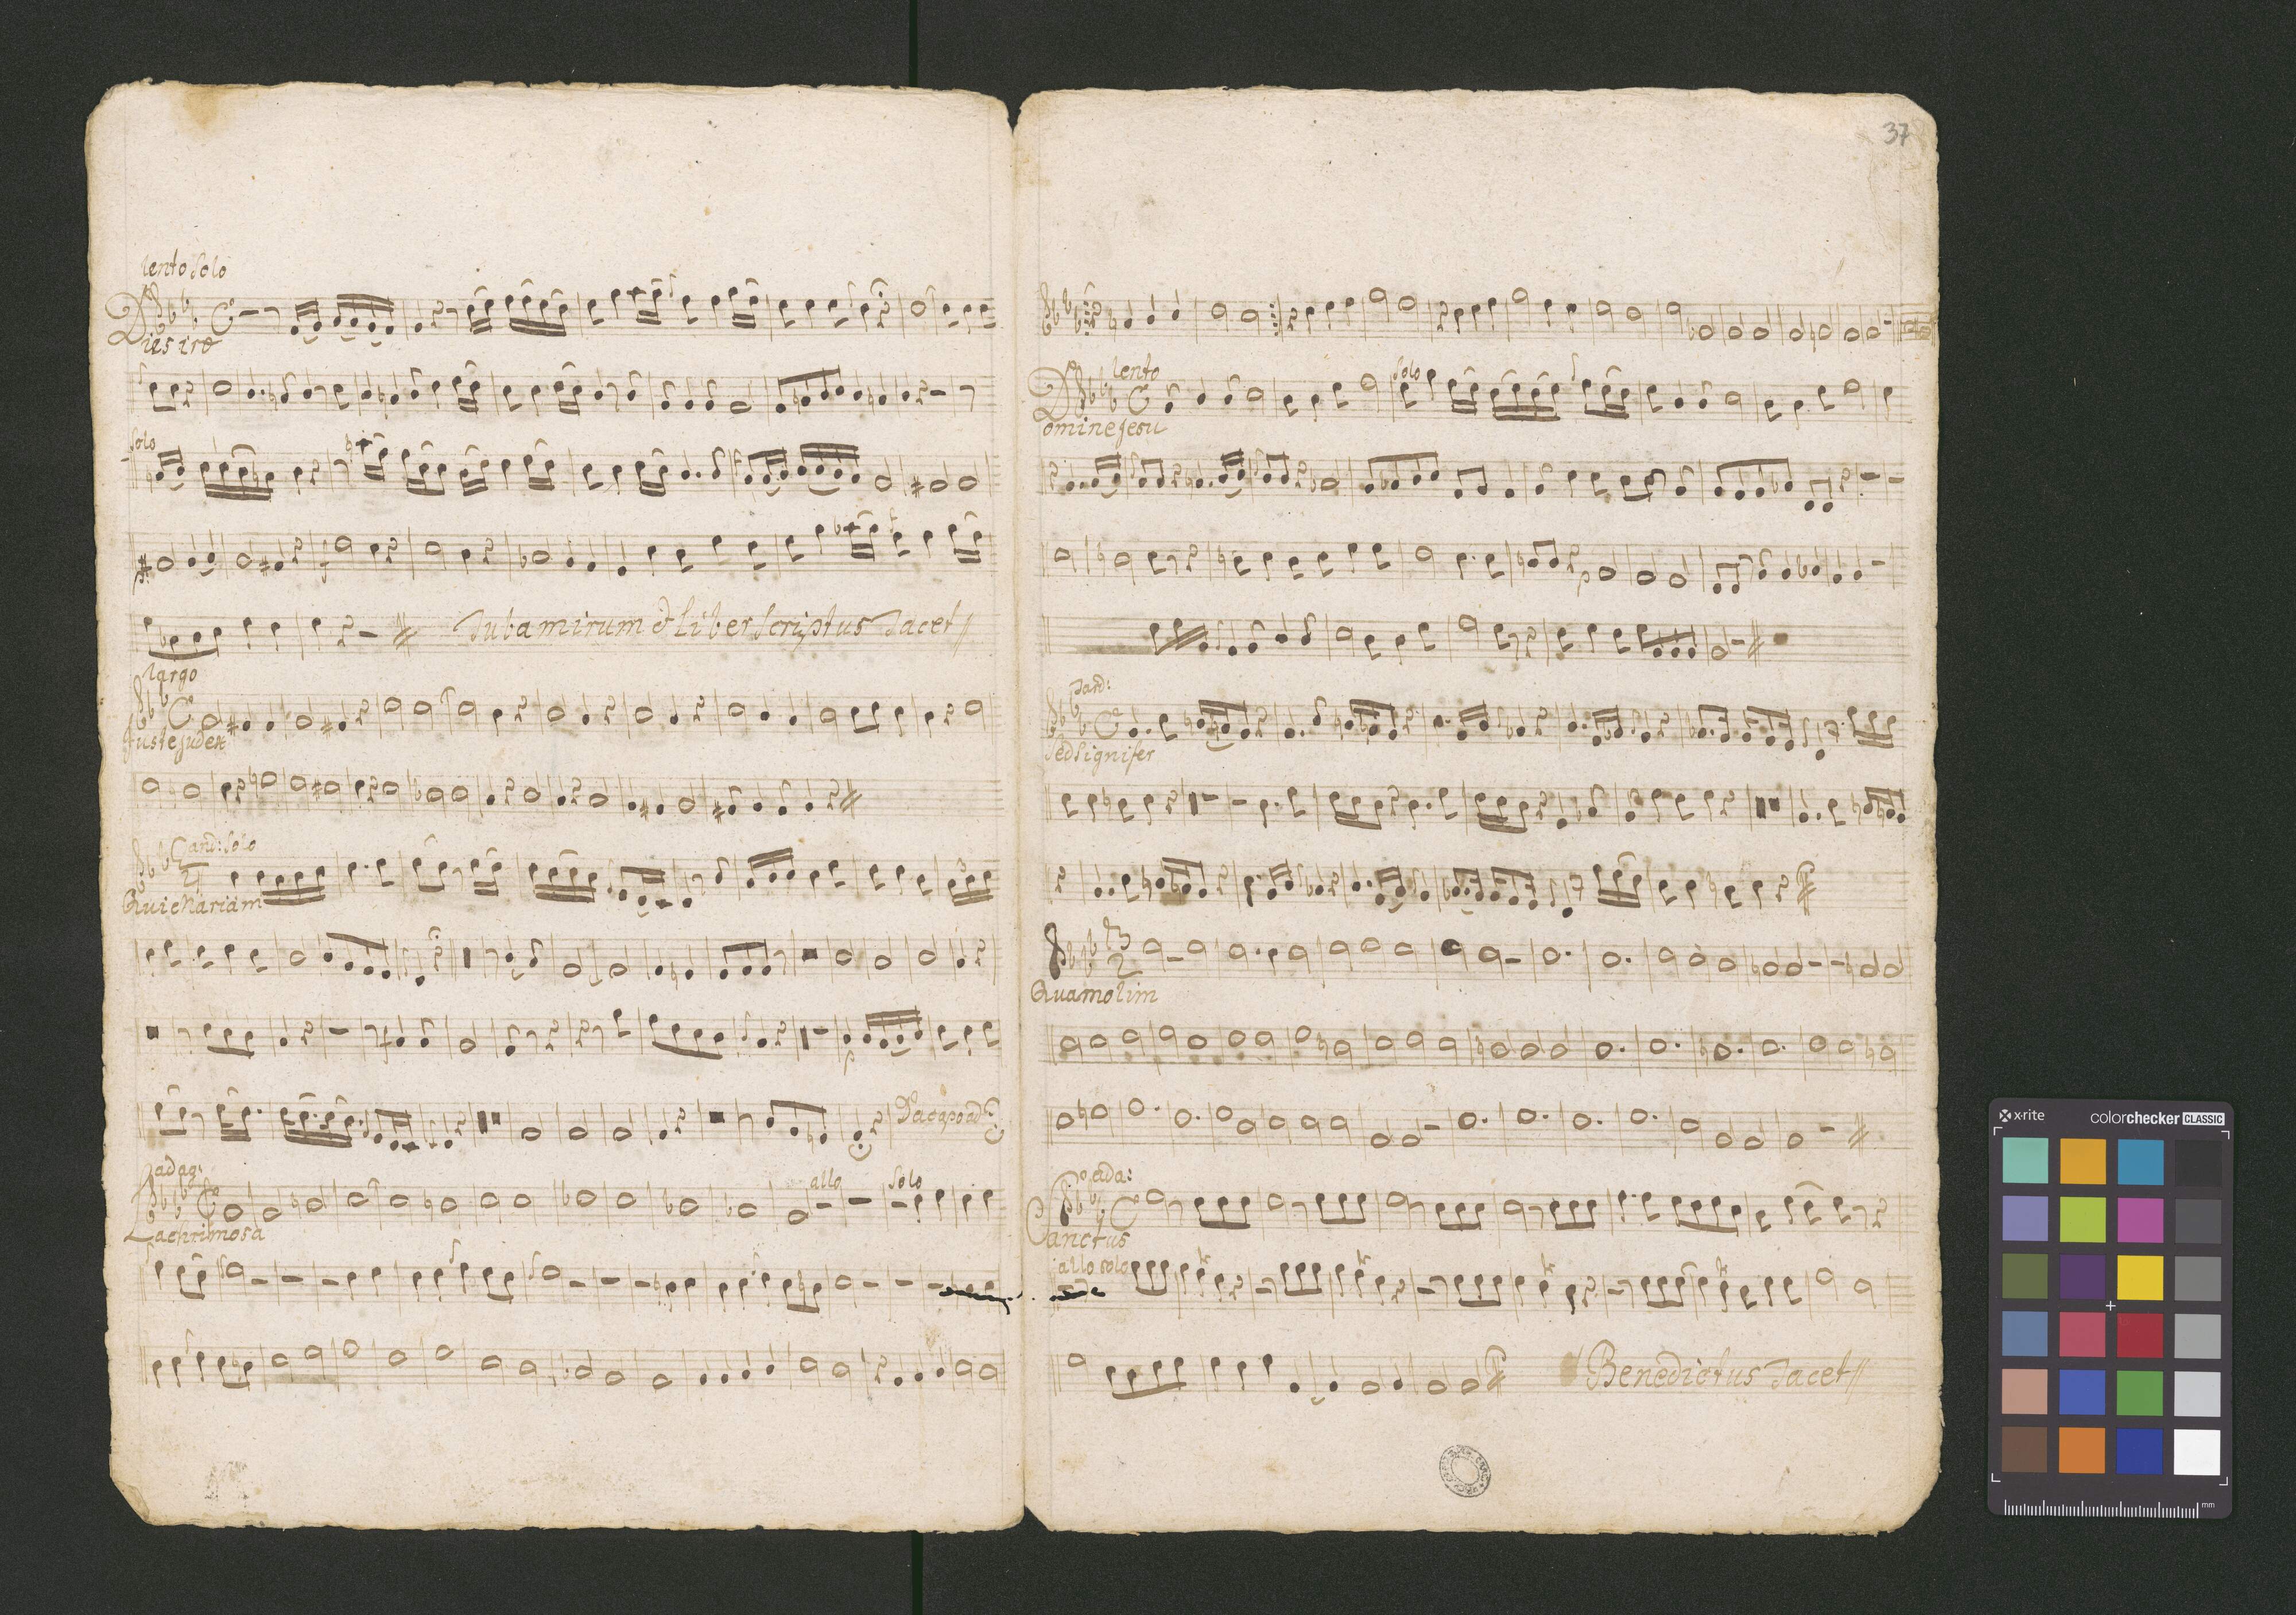 lento Solo
Dies ire
Solo
Tuba mirum & liber scriptus Tacet
largo
Juste judex
and: Solo
Qui Mariam
Da capo ad
adag:
allo
Solo
Lachrimosa
37
lento
Solo
Domine Jesu
Tard:
Sed Signifer
Quam olim
ada:
Sanctus
allo solo
Benedictus Tacet
x-rite
colorchecker CLASSIC
mm